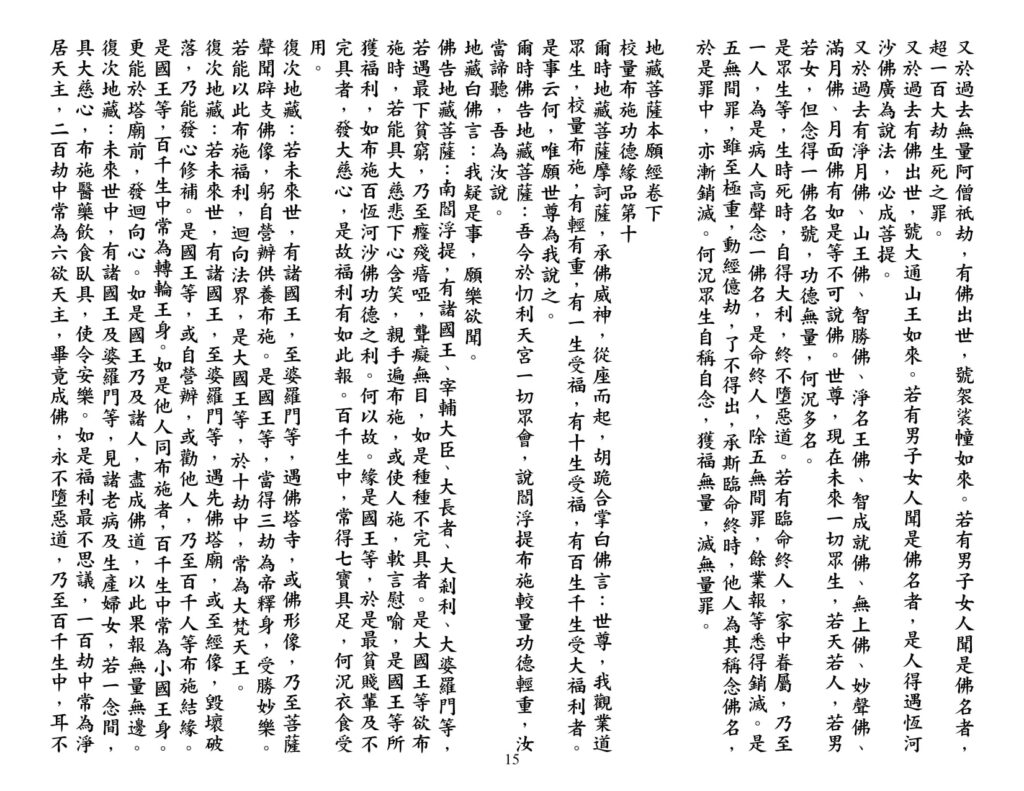 又於過去無量阿僧祇劫，有佛出世，號袈裟幢如來。若有男子女人聞是佛名者，
超一百大劫生死之罪。
又於過去有佛出世，號大通山王如來。若有男子女人聞是佛名者，是人得遇恆河
沙佛廣為說法，必成菩提。
又於過去有淨月佛、山王佛、智勝佛、淨名王佛、智成就佛、無上佛、妙聲佛、
滿月佛、月面佛有如是等不可說佛。世尊，現在未來一切眾生，若天若人，若男
若女，但念得一佛名號，功德無量，何況多名。
是眾生等，生時死時，自得大利，終不墮惡道。若有臨命終人，家中眷屬，乃至
一人，為是病人高聲念一佛名，是命終人，除五無間罪，餘業報等悉得銷滅。是
五無間罪，雖至極重，動經億劫，了不得出，承斯臨命終時，他人為其稱念佛名，
於是罪中，亦漸銷滅。何況眾生自稱自念，獲福無量，滅無量罪。
地藏菩薩本願經卷下
校量布施功德緣品第十
爾時地藏菩薩摩訶薩，承佛威神，從座而起，胡跪合掌白佛言：世尊，我觀業道
眾生，校量布施，有輕有重，有一生受福，有十生受福，有百生千生受大福利者。
是事云何，唯願世尊為我說之。
爾時佛告地藏菩薩：吾今於忉利天宮一切眾會，說閻浮提布施較量功德輕重，汝
當諦聽，吾為汝說。
地藏白佛言：我疑是事，願樂欲聞。
佛告地藏菩薩：南閻浮提，有諸國王、宰輔大臣、大長者、大剎利、大婆羅門等，
若遇最下貧窮，乃至癃殘瘖啞，聾癡無目，如是種種不完具者。是大國王等欲布
施時，若能具大慈悲下心含笑，親手遍布施，或使人施，軟言慰喻，是國王等所
獲福利，如布施百恆河沙佛功德之利。何以故。緣是國王等，於是最貧賤輩及不
完具者，發大慈心，是故福利有如此報。百千生中，常得七寶具足，何況衣食受
用。
復次地藏：若未來世，有諸國王，至婆羅門等，遇佛塔寺，或佛形像，乃至菩薩
聲聞辟支佛像，躬自營辦供養布施。是國王等，當得三劫為帝釋身，受勝妙樂。
若能以此布施福利，迴向法界，是大國王等，於十劫中，常為大梵天王。
復次地藏：若未來世，有諸國王，至婆羅門等，遇先佛塔廟，或至經像，毀壞破
落，乃能發心修補。是國王等，或自營辦，或勸他人，乃至百千人等布施結緣。
是國王等，百千生中常為轉輪王身。如是他人同布施者，百千生中常為小國王身。
更能於塔廟前，發迴向心。如是國王乃及諸人，盡成佛道，以此果報無量無邊。
復次地藏：未來世中，有諸國王及婆羅門等，見諸老病及生產婦女，若一念間，
具大慈心，布施醫藥飲食臥具，使令安樂。如是福利最不思議，一百劫中常為淨
居天主，二百劫中常為六欲天主，畢竟成佛，永不墮惡道，乃至百千生中，耳不
15